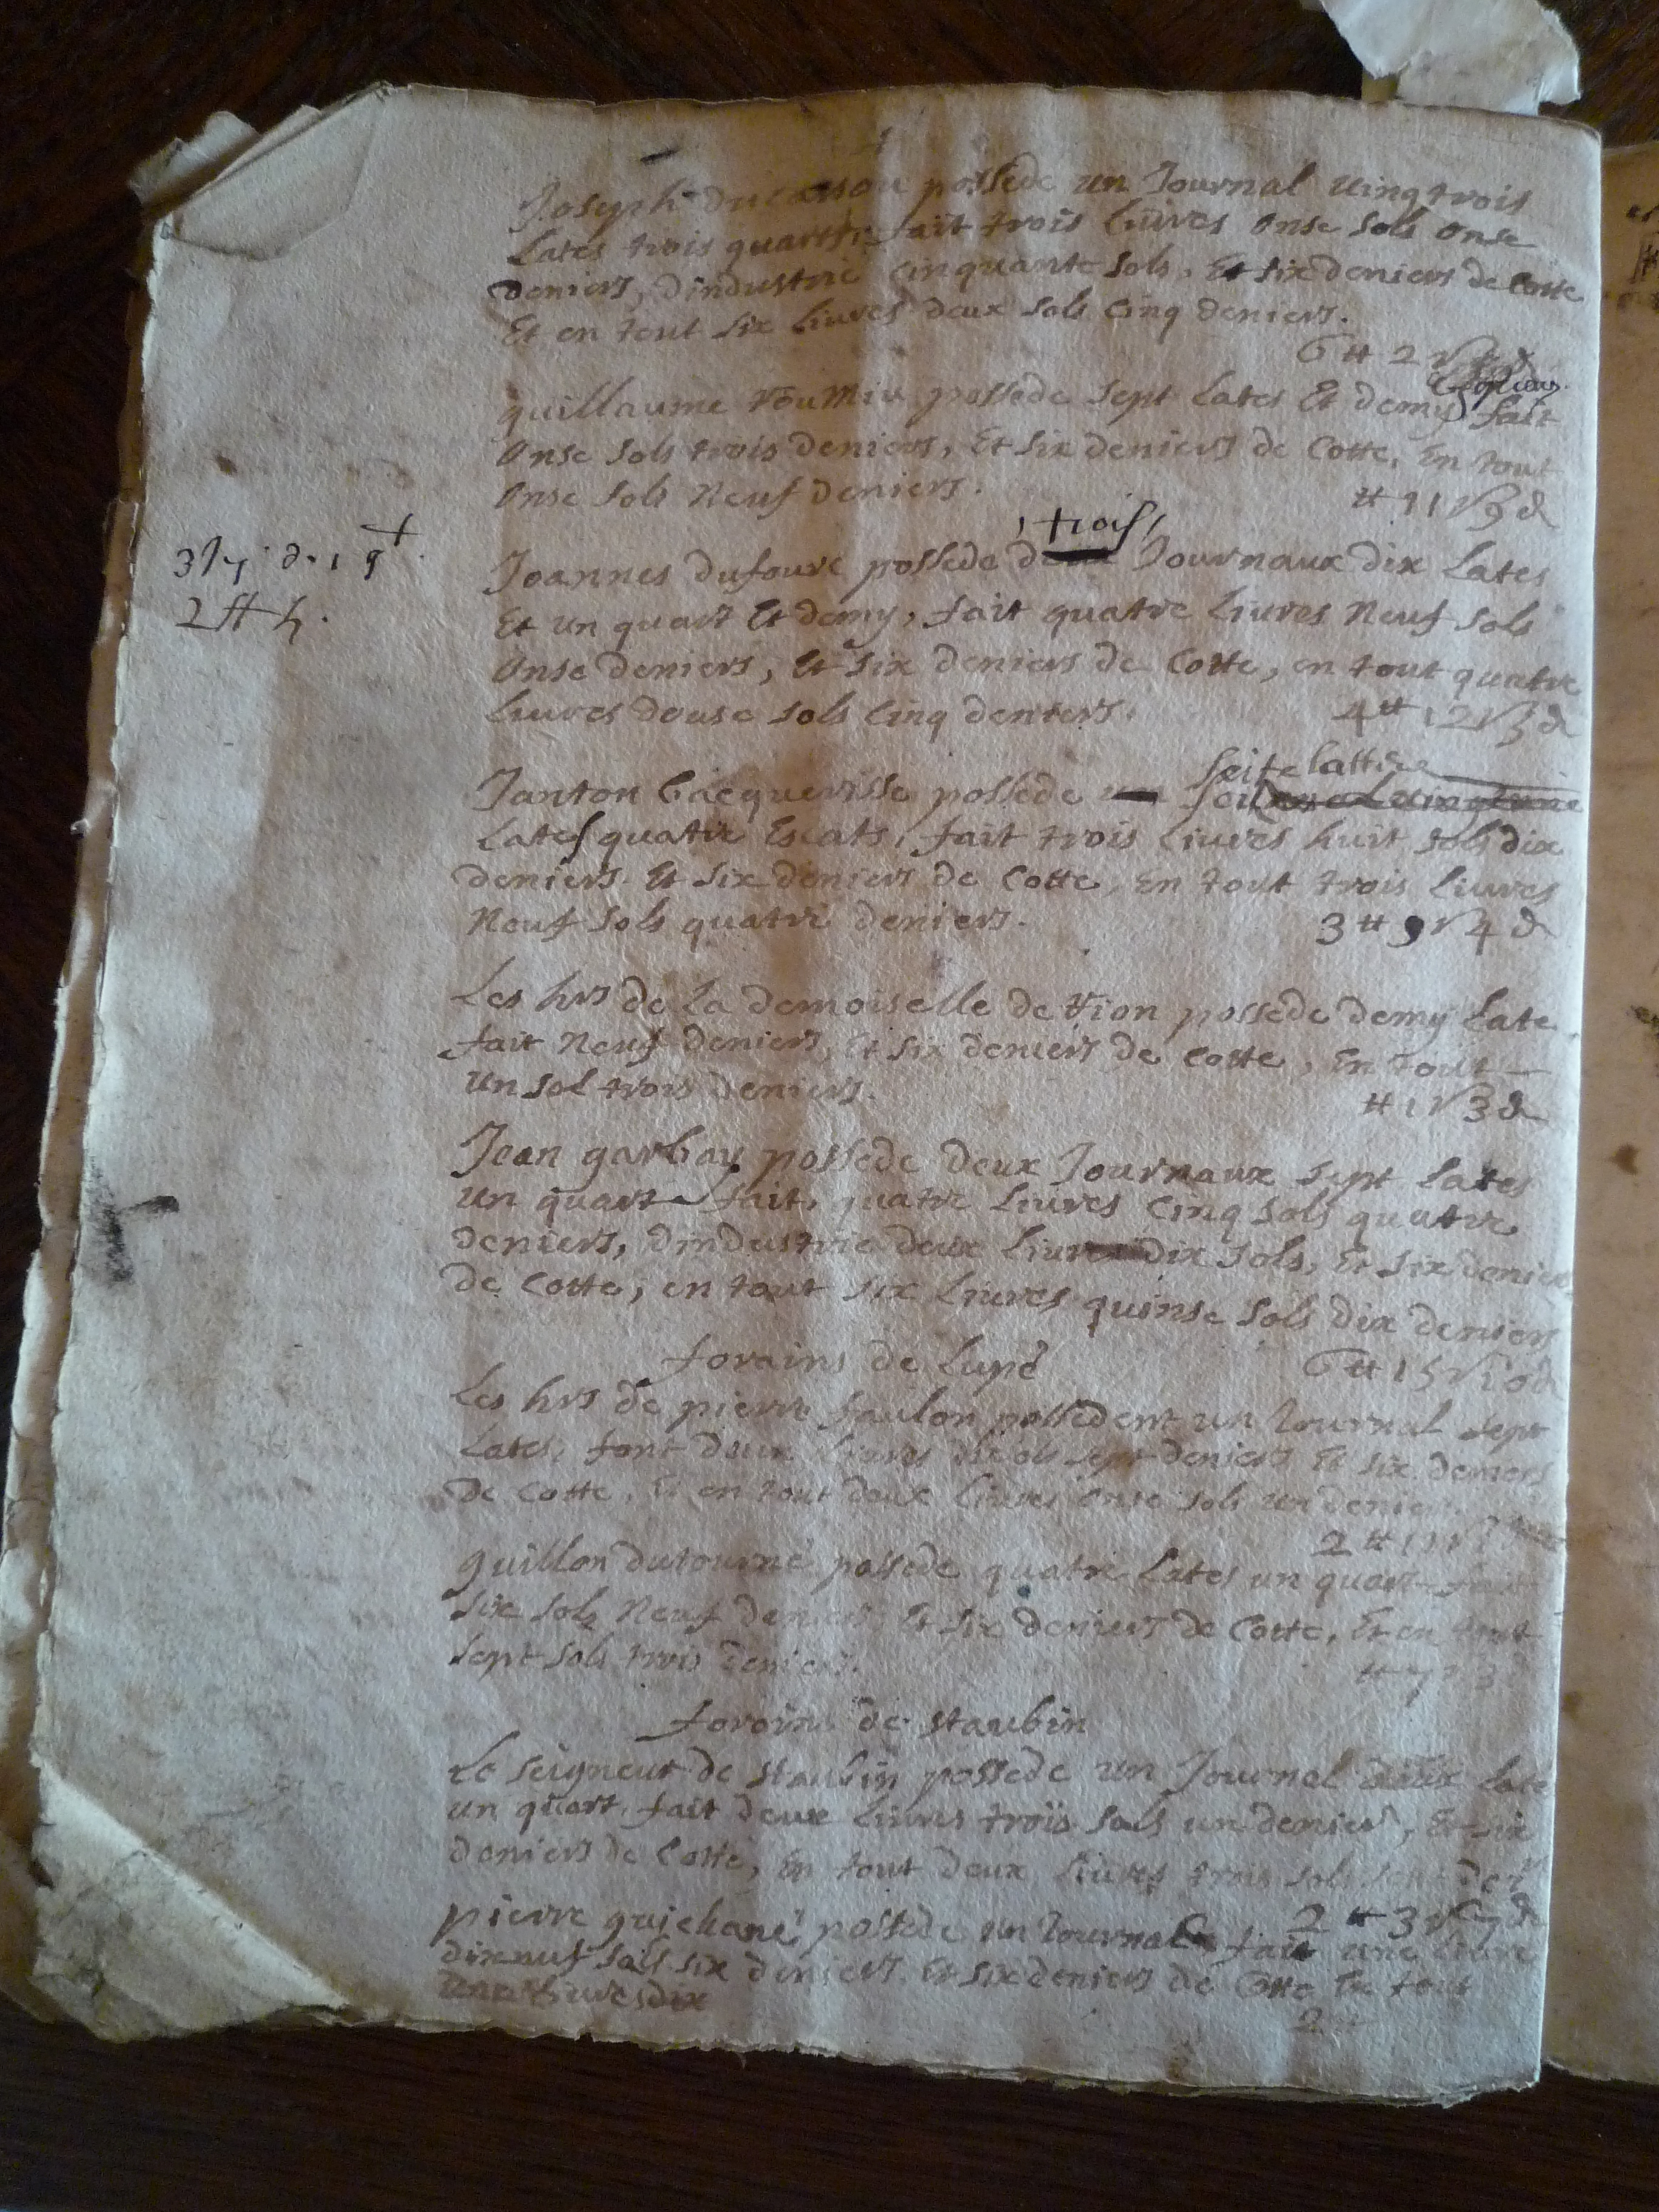 Joseph ducasson possede un Journal uingtrois
Lates trois quartz, fait trois liures onse sols onse
deniers, dindustrie cinquante sols, Et six deniers de Cotte
Et en tout six liures deux sols cinq deniers.
6 # 2
guillaume possede sept Lates Et demy fait
onse sols trois deniers, Et six deniers de Cotte, En tout
onse sols Neuf deniers.
# 11 s 9 d
trois
Joannes dufourc possede deux Journaux dix Lates
2 #
Et un quart Et demy, fait quatre liures Neuf sols
onse deniers, Et six deniers de Cotte, en tout quatre
liures douse sols cinq deniers.
4 # 12 s 5 d
seitse
Janton Cacquerisse possede
Lates quatre Escats, fait trois liures huit sols dix
deniers Et six deniers de Cotte, En tout trois liures
Neuf sols quatre deniers.
3 # 9 s 4 d
Les hrs de La demoiselle de possede demy Late
fait Neuf deniers, Et six deniers de cotte, En tout
un sol trois deniers.
# 1 s 3 d
Jean garbay possede deux Journaux sept Lates
un quart fait, quatre liures cinq sols quatre
deniers, dindustrie deux liures dix sols, Et six deniers
de Cotte, en tout six liures quinse sols dix deniers
6 # 15 s 10 d
forains de Lupé
Les hrs de pierre faulon possedent un Journal sept
Lates, font deux liures sols sept deniers Et six deniers
de Cotte, Et en tout deux liures onse sols un denier
2 # 11 s
guillon dutourné possede quatre Lates un quart fait
six sols Neuf deniers Et six deniers de Cotte, Et en tout
sept sols trois deniers.
# 7 s 3
forains de staubin
Le seigneur de staubin possede un Journal deux Late
un quart, fait deux liures trois sols un denier, Et six
deniers de Cotte, En tout deux liures trois sols sept der
2 # 3 s 7 d
pierre guichané possede un Journal fait une liure
dixneuf sols six deniers Et six deniers de Cotte En tout
2 #